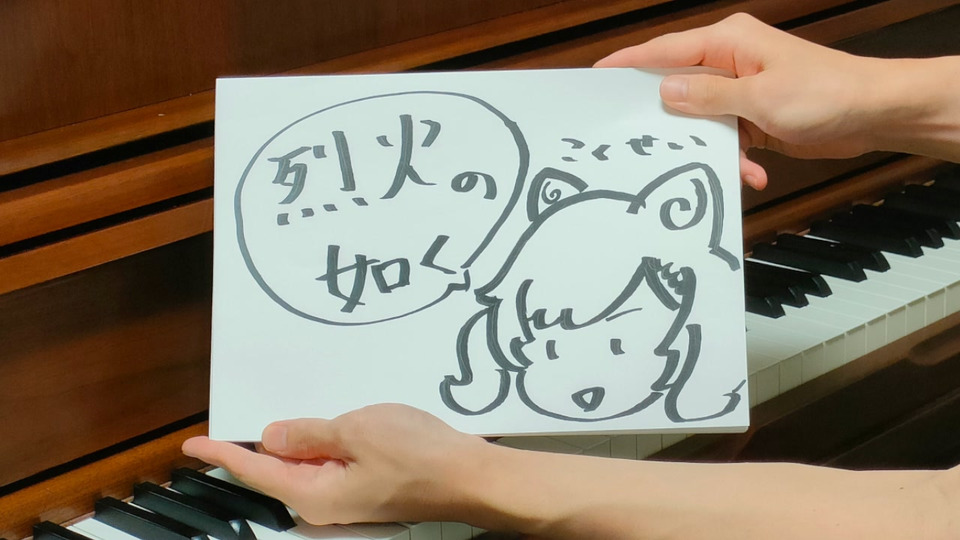 烈火の
如く
こくせい